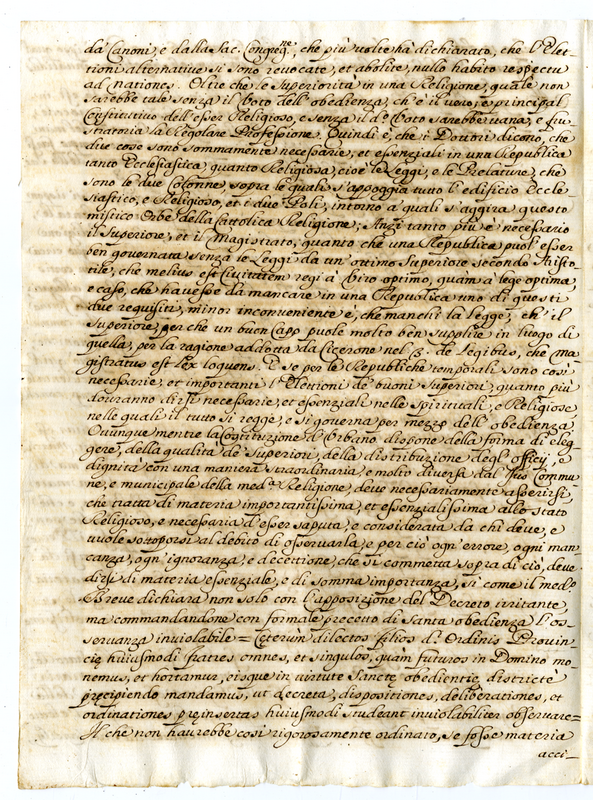 da Canoni, e dalla Sac. Congreg.ne, che più volte hà dichiarato, che l'Elet-
tioni alternative si sono revocate, et abolite, nullo habito respectu
ad nationes. Oltre che le Superiorità in una Religione, quale non
sarebbe tale senza il Voto dell'obedienza, ch'è il vero, e principal
Constitutivo dell'esser Religioso, e senza il d.º Voto sarebbe vana, e fru-
stratoria la Regolare Professione. Quindi è, che i Dottori dicono, che
due cose sono sommamente necessarie, et essenziali in una Republica
tanto Ecclesiastica, quanto Religiosa, cioè le Leggi, e le Prelature, che
sono le due Colonne, sopra le quali s'appoggia tutto l'edificio Eccle-
siastico, e Religioso, et i due Poli, intorno à quali s'aggira questo
mistico Orbe della Cattolica Religione; Anzi tanto più è necessario
il Superiore, et il Magistrato, quanto che una Republica puol'esser
ben governata senza le Leggi da un'ottimo Superiore secondo Aristo-
tile, che melius est Civitatem regi à Viro optimo, quàm à lege optima,
e caso, che havesse da mancare in una Republica uno di questi
due requisiti, minor inconveniente è, che manchi la legge, ch'il
Superiore, perche un buon Capo puole molto ben supplire in luogo di
quella, per la ragione addotta da Cicerone nel 3. de Legibus, che Ma-
gistratus est Lex loquens. E se per le Republiche temporali sono così
necessarie, et importanti l'Elettioni de buoni Superiori, quanto più
douranno dirsi necessarie, et essenziali nelle Spirituali, e Religiose,
nelle quali il tutto si regge, e si governa per mezzo dell'obedienza.
Ouunque mentre la Constituzione d'Urbano dispone della forma di eleg-
gere, della qualità de Superiori, della distribuzione degl'officij, e
dignità con una maniera straordinaria, e molto diversa dal Jus Commu-
ne, e municipale della med.ª Religione, deve necessariamente asserirsi,
che tratta di materia importantissima, et essenzialissima allo stato
Religioso, e necessaria d'esser saputa, e considerata da chi deve, e
vuole sottoporsi al debito di osservarla, e per ciò ogn'errore, ogni man-
canza, ogn'ignoranza, e decettione, che si commetta sopra di ciò, deve
dirsi di materia essenziale, e di somma importanza, si come il med.º
Breve dichiara non solo con l'apposizione del Decreto irritante,
ma commandandone con formale precetto di Santa obedienza l'os-
servanza inviolabile = Ceterùm dilectos filios d.i Ordinis Provin-
cię huiusmodi fratres omnes, et singulos, quàm futuros in Domino mo-
nemus, et hortamur, eisque in virtute Sanctę obedientię districtè
pręcipiendo mandamus, ut decreta, dispositiones, deliberationes, et
ordinationes pręinsertas huiusmodi studeant inviolabiliter observare=
Il che non haurebbe così rigorosamente ordinato, se fosse materia
acci-